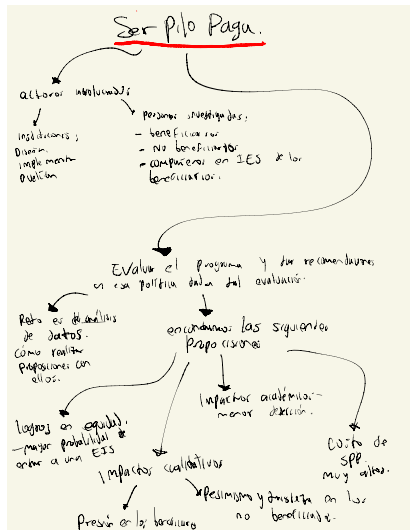 Ser Pilo Paga.
actores involucrados
Instituciones;
Diseñan
implementan
evalúan
personas investigadas;
- beneficiarios
- no beneficiarios
- compañeros en IES de los
beneficiarios.
Evaluar el programa y dar recomendaciones
en esa política dadas tal evaluación.
Reto es de análisis
de datos.
cómo realizar
proposiciones con
ellos.
encontramos las siguientes
proposiciones
logros en equidad.
- mayor probabilidad de
entrar a una EIS
Impactos cualitativos
Impactos académicos -
menor deserción.
Costo de
SPP.
muy altos.
Presión en los beneficiarios
Pesimismo y tristeza en los
no beneficiados.